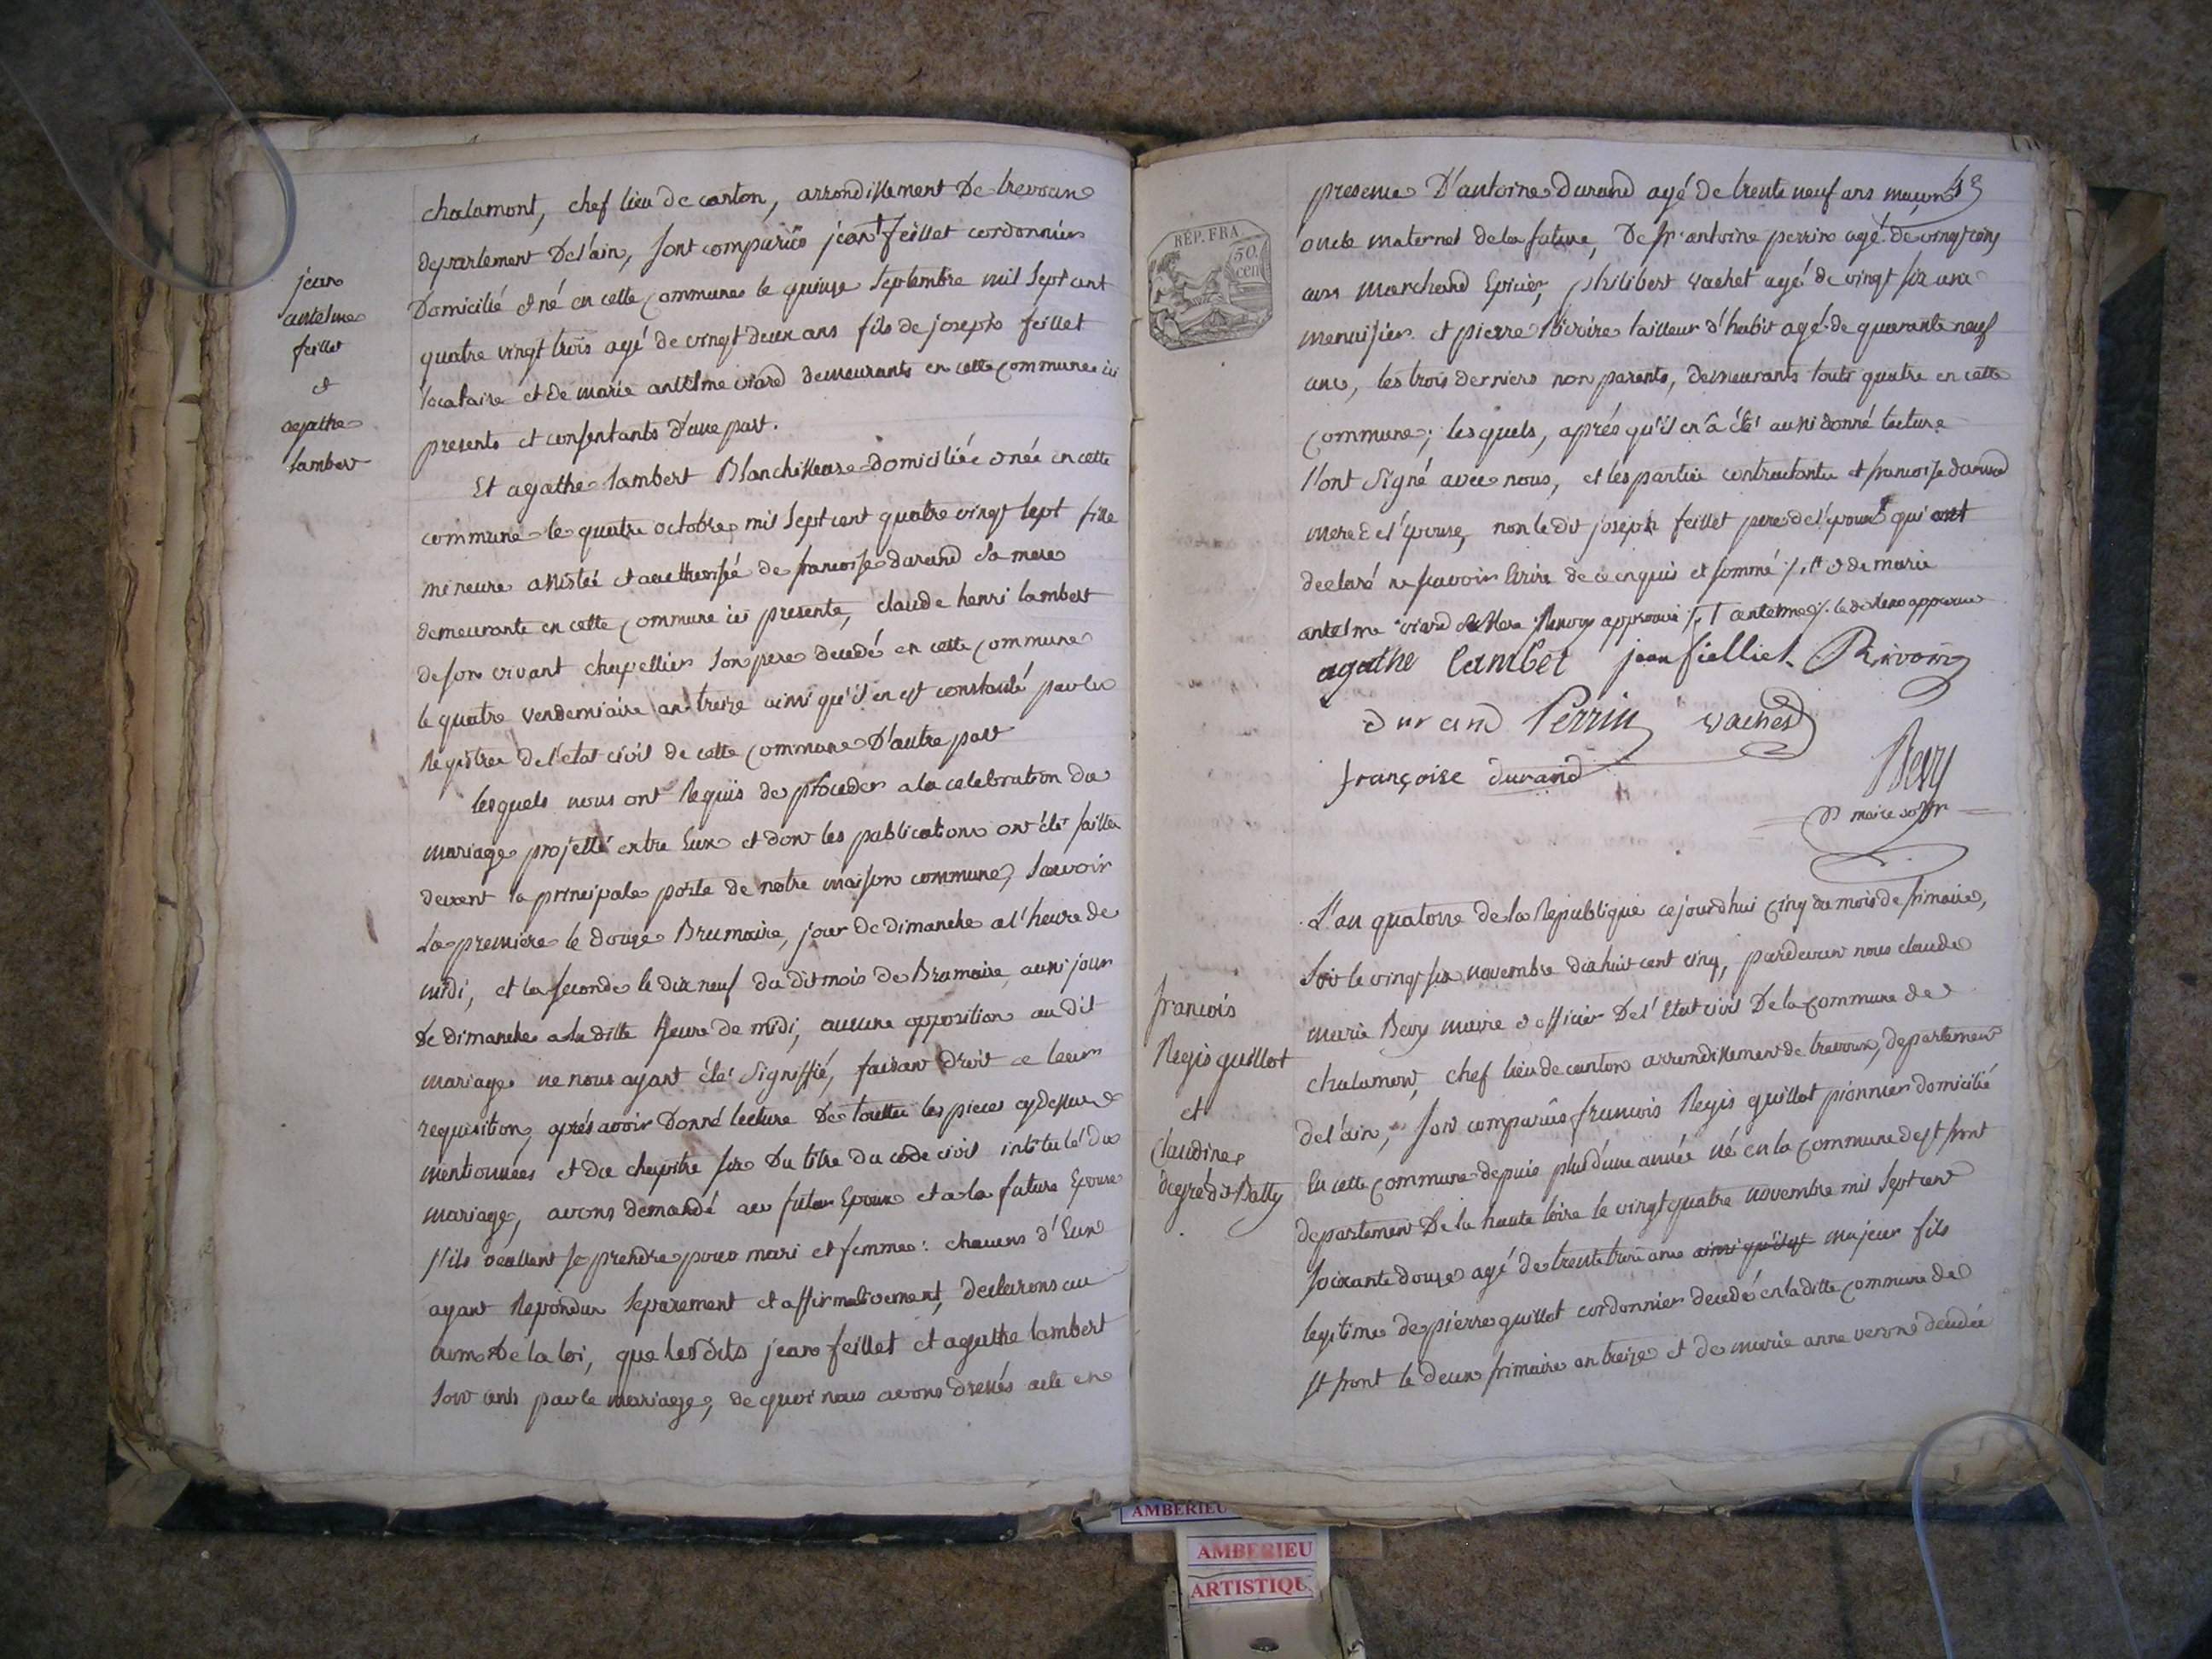 chalamont, chef lieu de canton, arrondissement De trevoux
departement De l'ain, sont comparûs jean feillet cordonnier
Domicilié et né en cette commune le quinze septembre mil sept cent
quatre vingt trois agé de vingt deux ans fils de joseph feillet
locataire et de marie anthelme viard demeurants en cette commune ici
presents et consentants d'une part.
jean
antelme
feillet
et
agathe
lambert
Et agathe lambert Blanchisseuse domiciliée et née en cette
commune le quatre octobre mil sept cent quatre vingt sept fille
mineure assistée et autherisée de francoise durand sa mere
demeurante en cette commune ici presente, claude henri lambert
de son vivant chapellier son pere decedé en cette commune
le quatre vendemiaire an treize ainsi qu'il en est constaté par les
Registres de l'etat civil de cette commune D'autre part
lesquels nous ont Requis de proceder a la celebration du
mariage projetté entre Eux et dont les publications ont été faittes
devant la principale porte de notre maison commune, savoir
La premiere le douze Brumaire, jour de dimanche a l'heure de
midi, et la seconde le dix neuf du dit mois de Brumaire, aussi jour
De dimanche a la ditte heure de midi, aucune opposition au dit
mariage ne nous ayant été signiffié, faisant droit a leur
requisition, aprés avoir Donné lecture De touttes les pieces cy dessus
mentionnées et du chapitre six Du titre du code civil intitulé du
mariage, avons demandé au futur Epoux et a la future Epouse
s'ils veullent se prendre pour mari et femme: chacuns d'Eux
ayant Repondus separement et affirmativement, declarons au
nom De la loi, que les dits jean feillet et agathe lambert
sont unis par le mariage, de quoi nous avons dressés acte en
presence D'antoine durand agé de trente neuf ans maçon
oncle maternel de la future, De sr. antoine perrin agé de vingt cinq
ans marchand Epicier, philibert vachet agé de vingt six ans
menuisier et pierre Rivoire tailleur d'habit agé de quarante neuf
ans, les trois derniers non parents, demeurants touts quatre en cette
commune; lesquels, aprés qu'il en a été aussi donné lecture
l'ont signé avec nous, et les parties contractantes et francoise durand
mere de l'epouse, non le dit joseph feillet pere de l'epoux qui ont
declaré ne scavoir Ecrire de ce enquis et sommé et de marie
antelme viard sa mere Renvoy approuvé antelme
agathe lambet jean fielliet Rivoire
durand Perrin vachet
françoise durand
Bevy
maire
REP. FRA
50
cent
L'an quatorze de la Republique ce jourd'hui cinq du mois de frimaire,
soit le vingt six novembre dix huit cent cinq, pardevant nous claude
marie Bevy maire et officier De l'Etat civil De la commune de
chalamont, chef lieu de canton arrondissement de trevoux, departement
de l'ain, sont comparûs francois Regis guillot pionnier domicilié
En cette commune depuis plus d'une année né en la commune de st front
departement De la haute loire le vingt quatre novembre mil sept cent
soixante douze agé de trente trois ans ainsi qu'il est majeur fils
legitime de pierre guillot cordonnier decedé en la ditte commune de
st front le deux frimaire an treize et de marie anne veroné decedée
francois
Regis guillot
et
claudine
dit Batty
AMBERIEU
AMBERIEU
ARTISTIQU